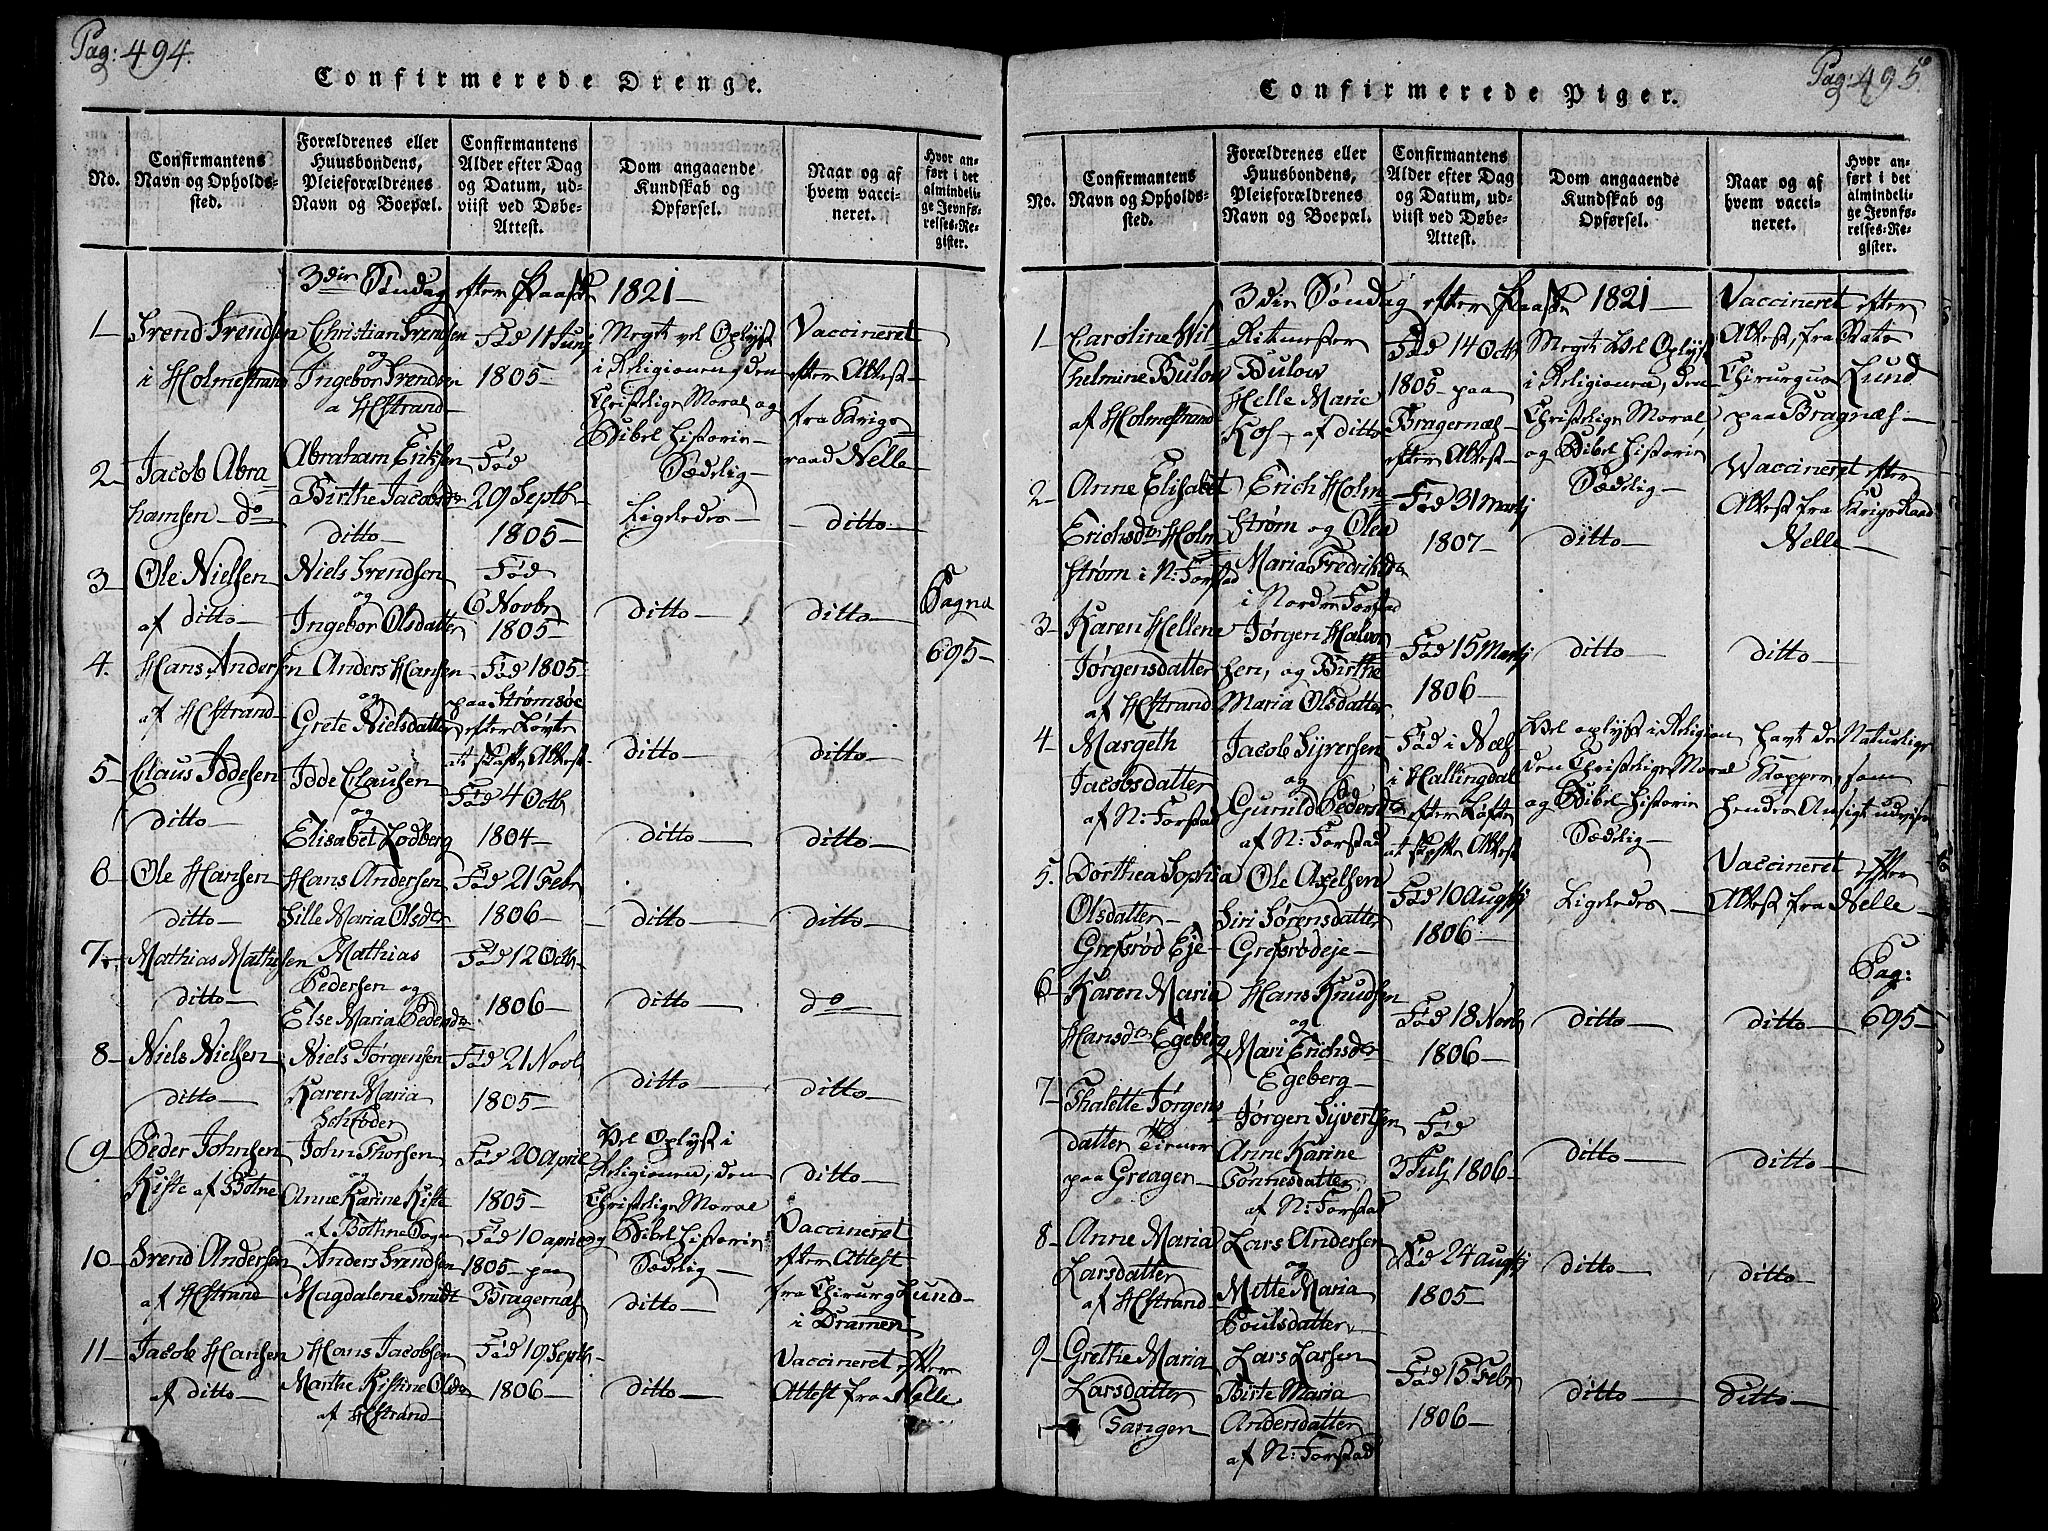 Pag: 494.
Confirmerede Drenge.
No.
Confirmantens
Navn og Opholds-
sted.
Forældrenes eller
Huusbondens,
Pleieforældrenes
Navn og Boepæl.
Confirmantens
Alder efter Dag
og Datum, ud-
viist ved Døbe-
Attest.
Dom angaaende
Kundskab og
Opførsel.
Naar og af
hvem vacci-
neret.
Hvor an-
ført i det
almindeli-
ge Jevnfø-
relses-Re-
gister.
3die Søndag efter Paaske 1821
1
Svend Svendsen
i Holmestrand
Christian Svendsen
og
Ingebor Svendsen
a HStrand
Fød 11 Junj
1805
Megt vel Oplyst
i Religionen, den
Christelige Moral og
Bibel Historie
Sædelig
Vaccineret
efter Attest
fra Krigs
raad Nelle
2
Jacob Abra
hamsen do
Abraham Eriksen
Birthe Jacobsdtr
ditto
Fød
29 Septbr
1805
Ligeledes
ditto
3
Ole Nielsen
af ditto
Niels Svendsen
og
Ingebor Olsdatter
Fød
6 Novbr
1805
ditto
ditto
Pagna
695
4.
Hans Andersen
af HStrand
Anders Hansen
og
Grete Nielsdatter
Fød 1805
paa Strømsøe
efter Løvte
at skaffe Attest
ditto
ditto
5
Claus Iddesen
ditto
Idde Clausen
og
Elisabet Lodberg
Fød 4 Octb
1804
ditto
ditto
6
Ole Hansen
ditto
Hans Andersen
Sille Maria Olsdtr
Fød 21 Febr
1806
ditto
ditto
7
Mathias Mathisen
ditto
Mathias
Pedersen og
Else Maria Pedersdtr
Fød 12 Octb
1806
ditto
do
8
Niels Nielsen
ditto
Niels Jørgensen
Karen Maria
Schrøder
Fød 21 Novb
1805
ditto
ditto
9
Peder Johnsen
Kiste af Botne
John Thorsen
og
Anne Karine Kiste
af Bothne Sogn
Fød 20 april
1805
Vel Oplyst i
Religionen, den
Christelige Moral
og Bibel Historie
Sædelig
ditto
10
Svend Andersen
af HStrand
Anders Svendsen
Magdalene Smidt
Fød 10 april
1805 paa
Bragernæs
ditto
Vaccineret
efter Attest
fra Chirurg Lund
i Dramen
11
Jacob Hansen
af ditto
Hans Jacobsen
Marthe Kistine Olsdtr
af HStrand
Fød 19 Septb
1806
ditto
Vaccineret efter
Attest fra Nelle
Pag: 495
Confirmerede Piger.
No.
Confirmantens
Navn og Opholds-
sted.
Forældrenes eller
Huusbondens,
Pleieforældrenes
Navn og Boepæl.
Confirmantens
Alder efter Dag
og Datum, ud-
viist ved Døbe-
Attest.
Dom angaaende
Kundskab og
Opførsel.
Naar og af
hvem vacci-
neret.
Hvor an-
ført i det
almindeli-
ge Jevnfø-
relses-Re-
gister.
3die Søndag efter Paaske 1821
1
Caroline Wil
helmine Bulow
af Holmestrand
Ritmester
Bulow
Helle Marie
Kos af ditto
Fød 14 Octb
1805 paa
Bragernæs
efter Attest
Megt Vel Oplyst
i Religionen, den
Christelige Moral,
og Bibel Historie
Sædelig
Vaccineret efter
Attest, fra Rats
Chirurgus Lund
paa Bragnæs
2
Anne Elisabet
Erichsdtr Holm
strøm i N: Forstad
Erich Holm
strøm og Olea
Maria Fredriksdtr
i Nordre Forstad
Fød 31 Martj
1807
ditto
Waccineret efter
Attest fra Krigs Raad
Nelle
3
Karen Hellene
Jørgensdatter
af HStrand
Jørgen Halvor
sen, og Birthe
Maria Olsdatter
Fød 15 Martj
1806
ditto
ditto
4
Margeth
Jacobsdatter
af N: Forstad
Jacob Syversen
og
Gunild Pedersdtr
af N: Forstad
Fød i Næs
i Hallingdal
efter Løfte
at skaffe Attest
Vel oplyst i Religion
den Christelige Moral
og Bibel Historie
Sædelig
havt de Naturlige
Kopper, som
hendes Ansigt udviser
5.
Dorthea Sophia
Olsdatter
Grefsrød Eje
Ole Axelsen
Siri Sørensdatter
Grefsrødeje
Fød 10 Augustj
1806
Ligeledes
Vaccineret efter
Attest fra Nelle
6
Karen Maria
Hansdtr Egeberg
Hans Knudsen
og
Mari Erichsdtr
Egeberg
Fød 18 Novb
1806
ditto
ditto
Pag:
695
7
Thalette Jørgens
datter Tiener
paa Greager
Jørgen Syvertsen
Anne Karine
Tonnesdatter
af N: Forstad
Fød
3 Julj 1806
ditto
ditto
8
Anne Maria
Larsdatter
af HStrand
Lars Andersen
og
Mitte Maria
Poulsdatter
Fød 24 augustj
1805
ditto
ditto
9
Grethe Maria
Larsdatter
Tangen
Lars Larsen
Birte Maria
Andersdatter
af N: Forstad
Fød 15 Febr
1806
ditto
Ditto